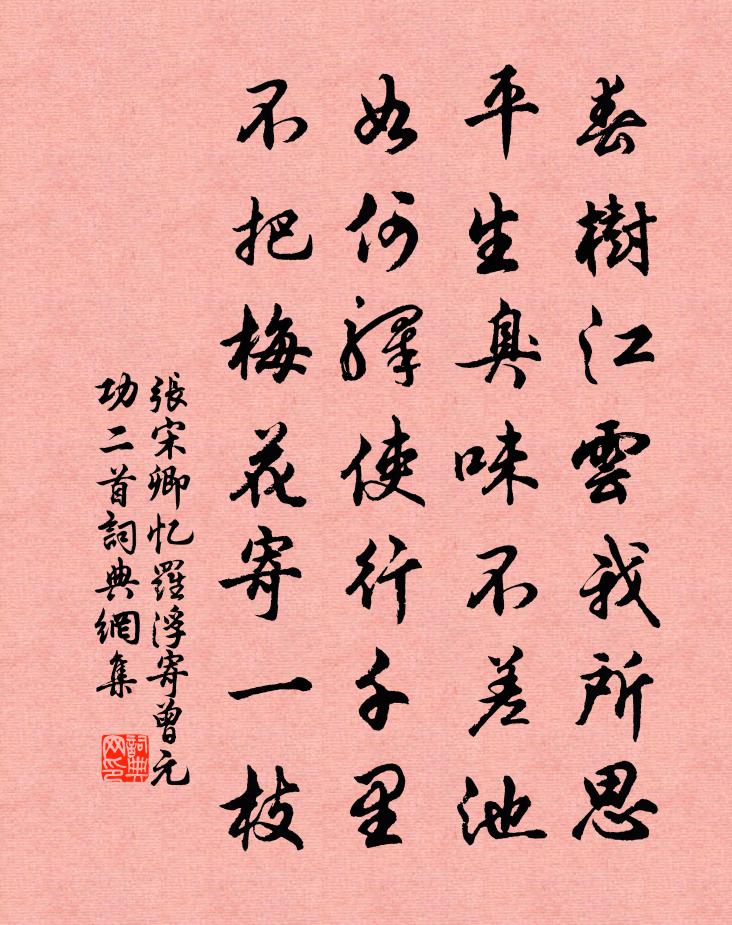 春樹江雲我所思
平生臭味不差池
如何驛使行千里
不把梅花寄一枝
張宋卿忆羅浮寄曾元
功二首詞典網集
詞典网印